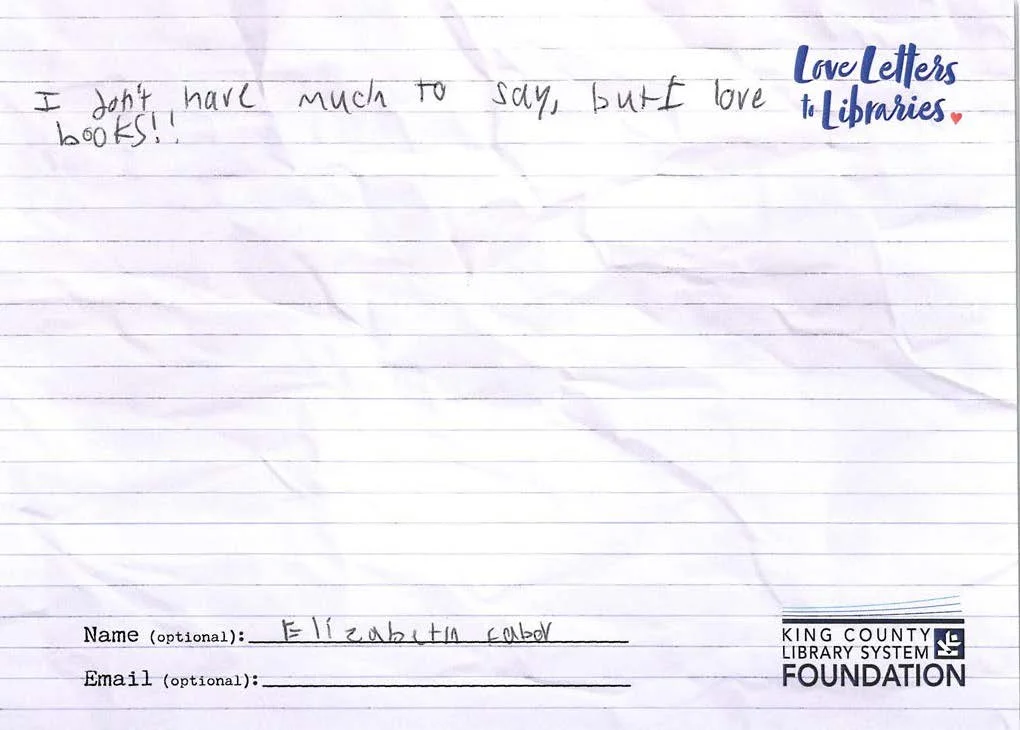 Love Letters
to Libraries
I don't have much to say, but I love
books!!
Name (optional): Elizabeth
Email (optional):
KING COUNTY
LIBRARY SYSTEM
FOUNDATION